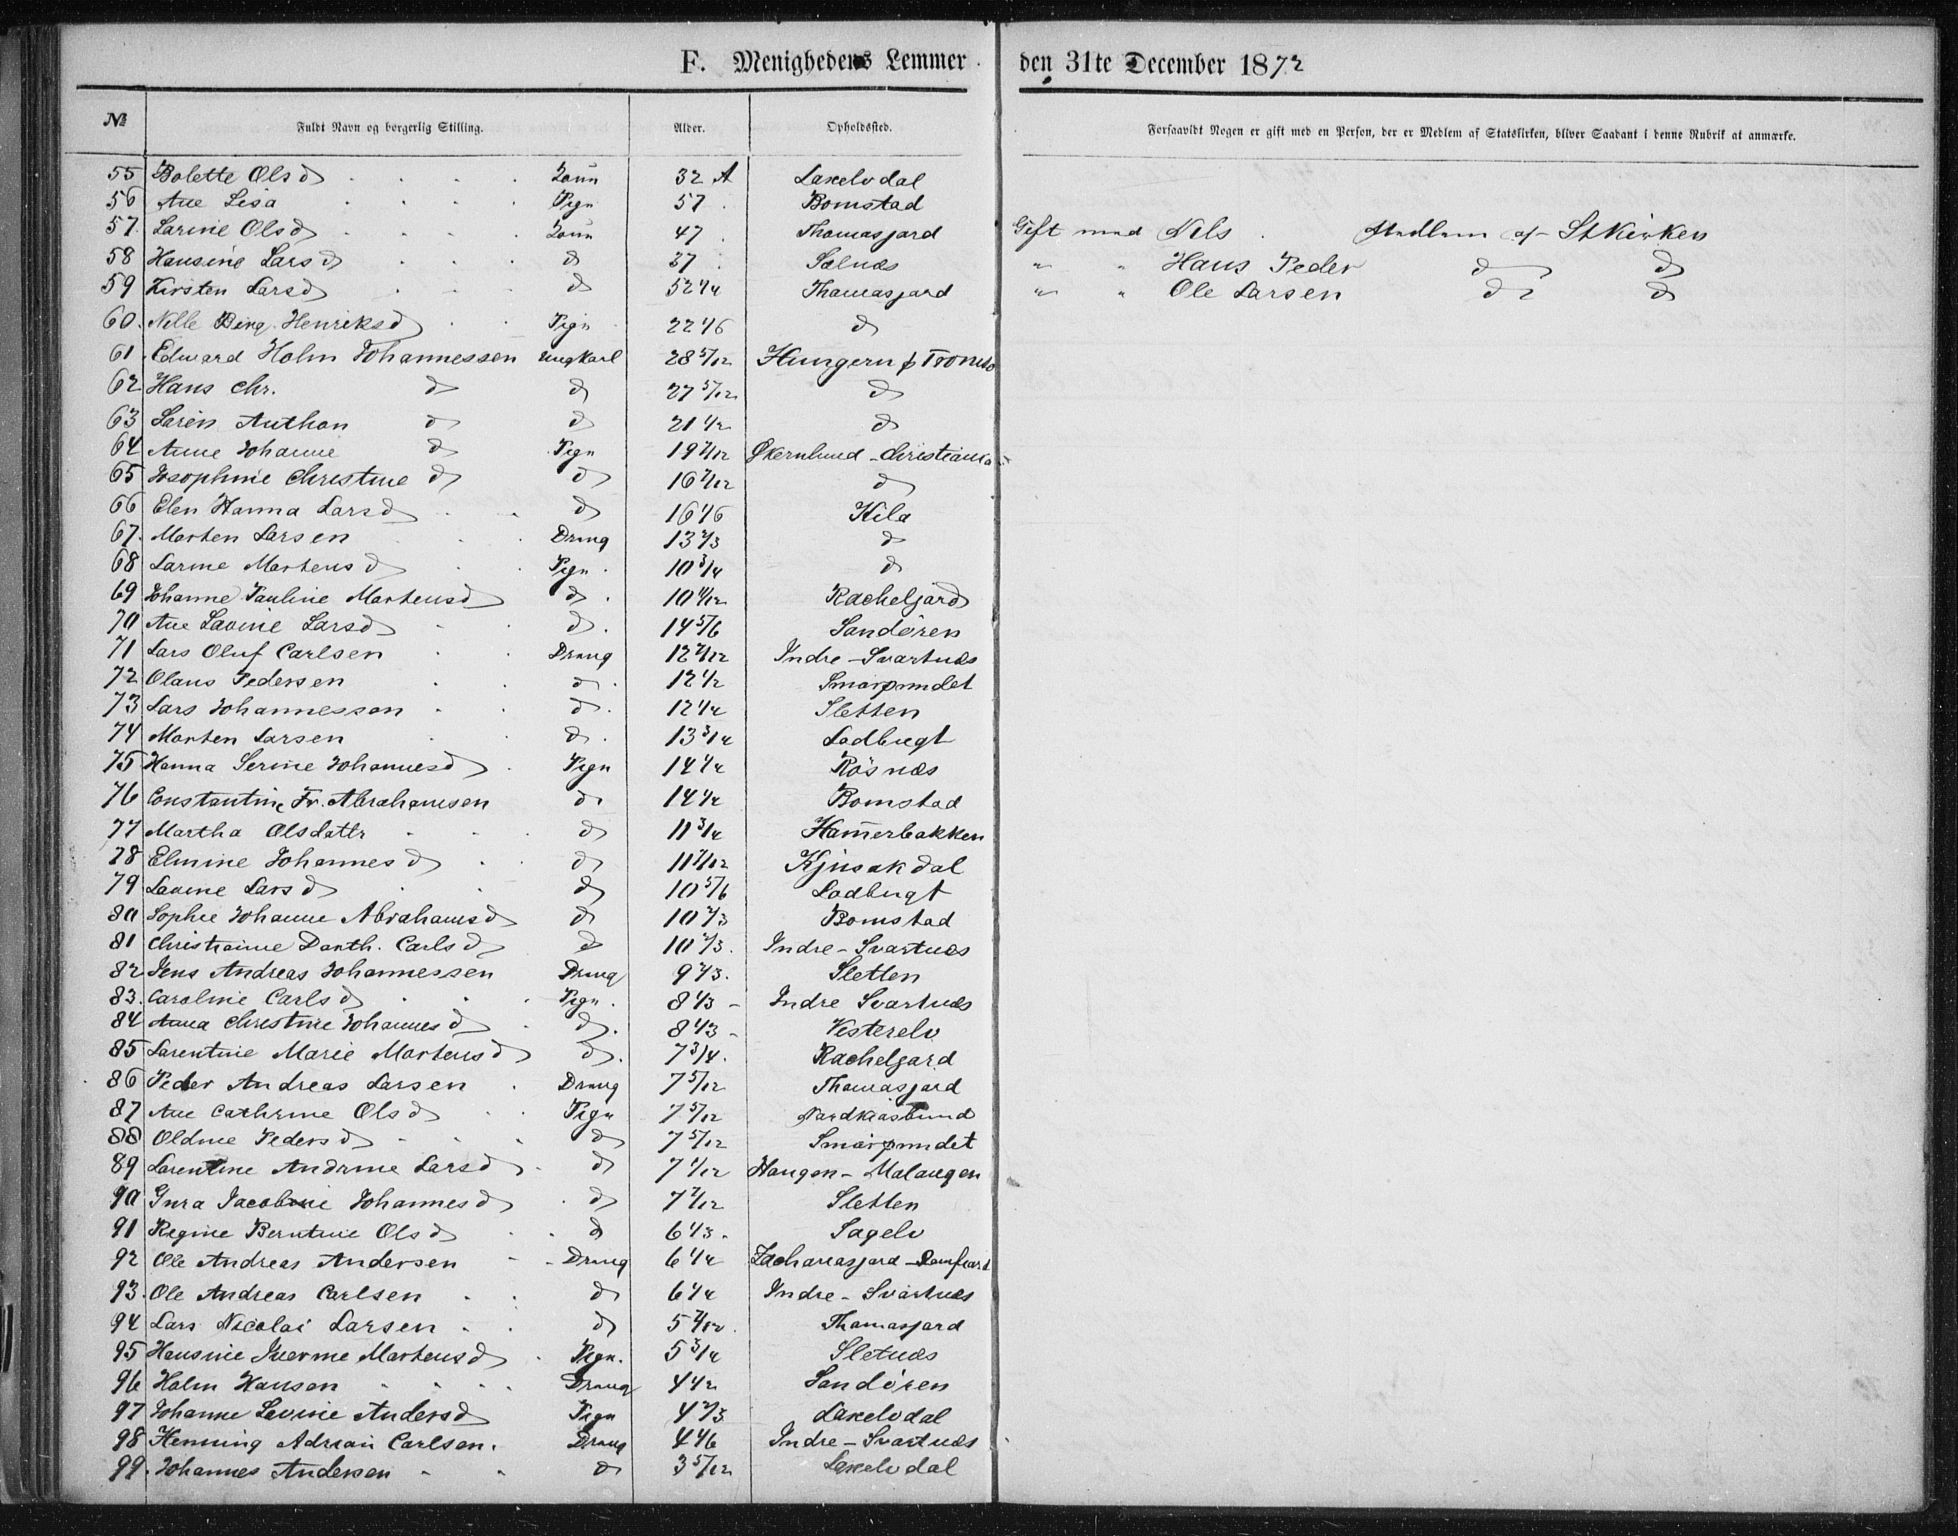 F. Menighedens Lemmer den 31te December 1872
№ Fuldt Navn og borgerlig Stilling. Alder. Opholdssted. Forsaavidt Nogen er gift med en Person, der er Medlem af Statskirken, bliver Saadant i denne Rubrik at anmærke.
55 Bolette Olsd 32 A Lakelvdal
56 Ane Lisa Pign 57 Bomstad
57. Larine Olsd 47 Thomasjord Gift med Nels Medlem af StKirken
58 Hansine Larsd d 37 Solnæs " " Hans Peder d d
59 Kirsten Larsd d 52 1/4 Thomasjord " " Ole Larsen d d
60. Nelle Henriksd Pign 22 1/6 d
61. Edward Holm Johannessen ungkarl 28 5/12 Hungeren p Tromsö
62 Hans Chr. d d 27 5/12 d
63 Sören Anthon d d 21 1/2 d
64 Anne Johanne d Pign 19 7/12 Økernlund - Christiania
65 Josephine Christine d d 16 7/12 d
66 Elen Hanna Larsd d 16 1/6 Kila
67. Morten Larsen Dreng 13 2/3 d
68 Larine Martensd Pign 10 3/4 d
69 Johanne Pauline Martensd d 10 1/12 Racheljord
70 Ane Lavine Larsd d. 14 5/6 Sandören
71 Lars Oluf Carlsen Dreng 12 7/12 Indre - Svartnæs
72 Olaus Pedersen d 12 1/2 Smörpundet
73 Lars Johannessen d. 12 1/4 Sletten
74 Morten Larsen d. 13 3/4 Lodbugt
75 Hanna Serine Johannesd Pign 14 1/4 Rösnæs
76 Constantine Fr. Abrahamsen d 14 1/2 Bomstad
77 Martha Olsdattr d 11 3/4 Ham̄erbakken
78 Elmine Johannesd d 11 7/12 Kjusakdal
79 Lavine Larsd d 10 5/6 Lodbugt
80 Sophie Johanne Abrahamsd d 10 2/3 Bomstad
81 Christianne Dorth. Carlsd d 10 2/3. Indre - Svartnæs
82 Jens Andreas Johannessen Dreng 9 2/3. Sletten
83. Caroline Carlsd Pign. 8 1/3 - Indre Svartnæs
84 Anna Christine Johannesd d. 8 1/3 - Vesterelv
85 Larentine Marie Martensd d. 7 3/4. Rachelgard
86 Peder Andreas Larsen Dreng 7 5/12 Thomasjord
87 Ane Cathrine Olsd Pign 7 5/12 Nordkjosbund
88 Oldine Pedersd d 7 5/12 Smörpundet
89 Larentine Andrine Larsd d 7 1/12 Haugen - Malangen
90 Gura Jacobine Johannesd d 7 1/12 Sletten
91 Regine Berntine Olsd d 6 1/3. Sagelv
92 Ole Andreas Andersen Dreng 6 1/4 Zachariasjord - Ramfjord
93. Ole Andreas Carlsen d 6 1/4 Indre - Svartnæs
94 Lars Nicolai Larsen d 5 7/12. Thomasjord
95 Hansine Iverine Martensd Pign. 5 3/4 Sletnæs
96 Holm Hansen Dreng 4 1/2 Sandören
97 Johanne Lovise Andersd Pign 4 2/3 Lakelvdal
98 Henning Adrian Carlsen. Dreng 4 1/6 Indre - Svartnæs
99. Johannes Andersen d 3 5/12 Lakelvdal